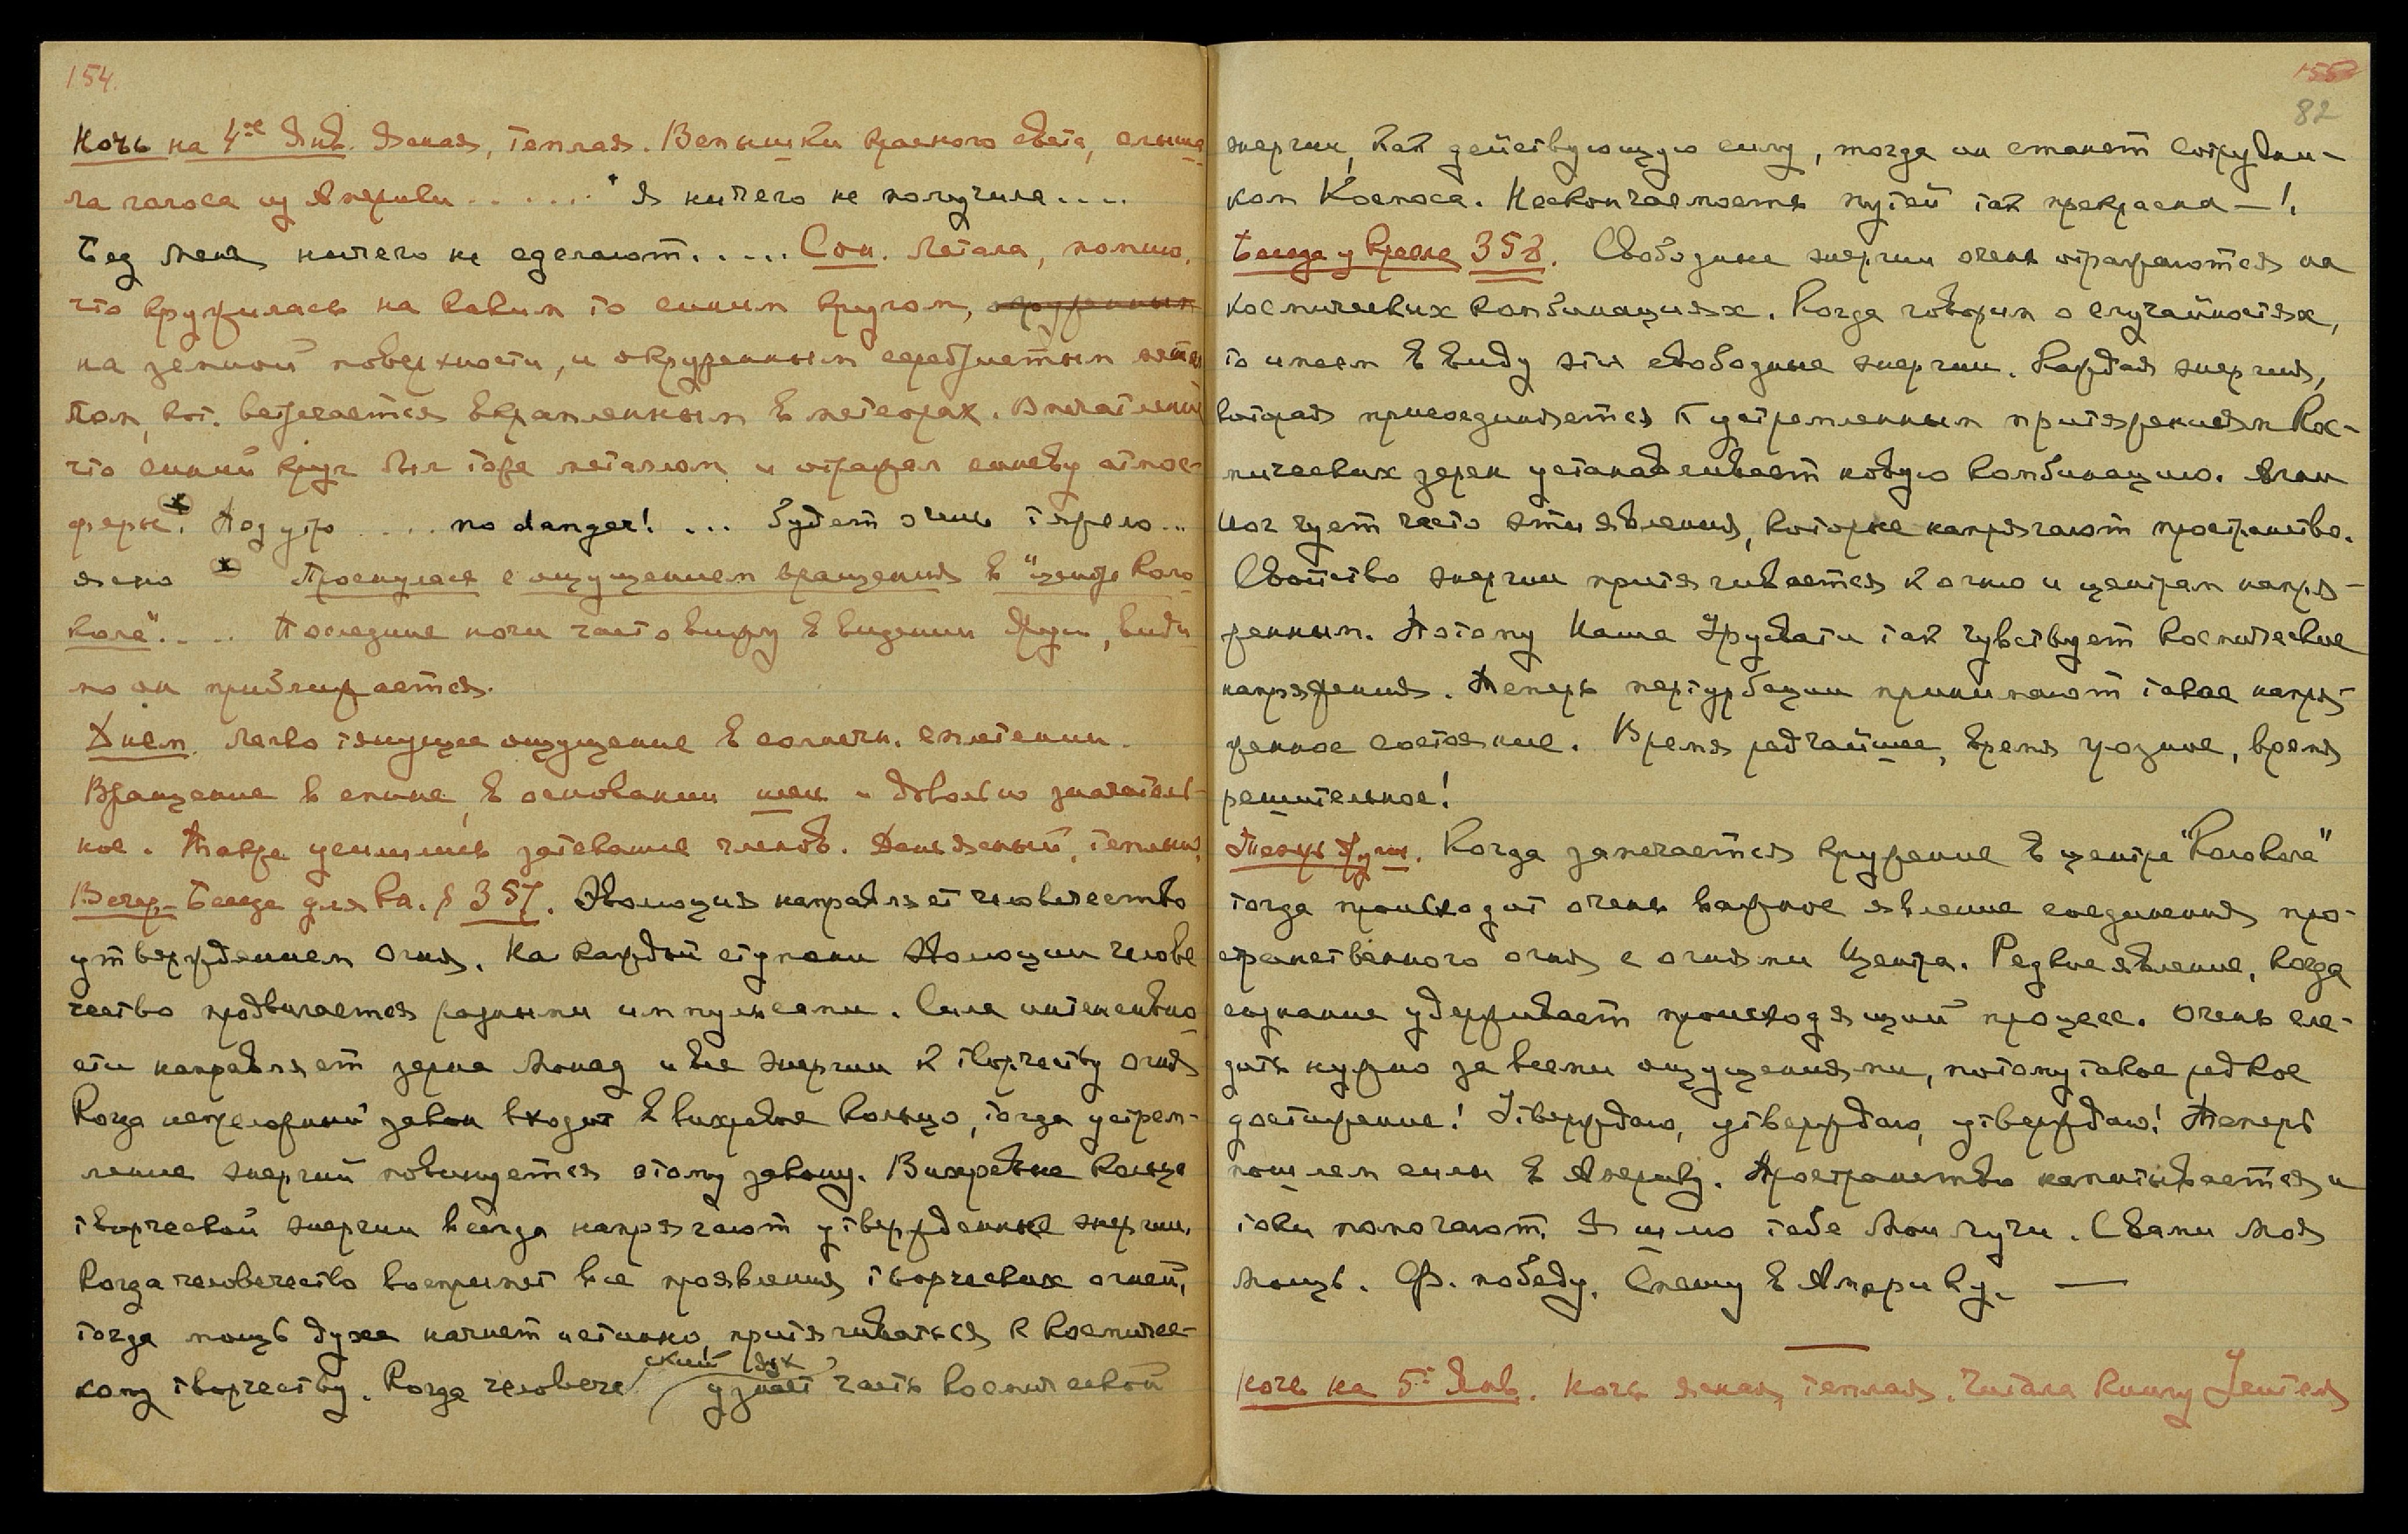 154.
Ночь на 4ое Янв. Ясная, теплая. Вспышки красного света, слыша
ла голоса из Америки ...... "Я ничего не получила....
Без меня ничего не сделают..... Сон. Летала, помню,
что кружилась на каким то синим кругом, окруженным
на земной поверхности, и окруженным серебристым
что синий круг был тоже металлом и отражал синеву атмос-
феры. Под утро .... no danger! ... будет очень тяжело...
ясно Проснулася с ощущением вращения в "центре Коло
кола".... Последние ночи часто вижу в видении Яруи, види
мо он приближается.
Днем. Легко тянущее ощущение в солнечн. сплетении.
Вращение в спине, в основании шеи и довольно значитель-
ное. Также усилились затекание членов. День ясный, теплый.
Вечер - Беседа для Кн. § 357. Эволюция направляет человечество
утверждением Огня. На каждой ступени эволюции челове
чество продвигается разными импульсами. Сила интенсивно
сти направляет зерна Монад и все энергии к творчеству огня
Когда непреложный закон входит в вихревое кольцо, тогда устрем-
ление энергий повинуется этому закону. Вихревые кольца
творческой энергии всегда напрягают утвержденные энергии.
Когда человечество воспримет все проявления творческих огней,
тогда мощь духа начнет истинно притягиваться к космичес-
кому творчеству. Когда человече ский дух узнает часть космической
155
82
энергии, как действующую силу, тогда он станет сотрудни-
ком Космоса. Нескончаемость путей так прекрасна —!.
Беседа у Кресла 358. Свободные энергии очень отражаются на
космических комбинациях. Когда говорим о случайностях,
то имеем в виду эти свободные энергии. Каждая энергия,
которая присоединяется к устремленным притяжениям Кос-
мических зерен устанавливает новую комбинацию. Агни
Иог чует часто эти явления, которые напрягают пространство.
Свойство энергии притягивается к огню и центрам напря-
женным. Потому Наша Урусвати так чувствует космические
напряжения. Теперь пертурбации принимают такое напря-
женное состояние. Время редчайшее, время грозное, время
решительное!
Когда замечается кружение в центре "Колокола"
тогда происходит очень важное явление соединения про-
странственного огня с огнями Центра. Редкое явление, когда
сознание удерживает происходящий процесс. Очень сле-
дить нужно за всеми ощущениями, потому такое редкое
достижение! Утверждаю, утверждаю, утверждаю! Теперь
пошлем силы в Америку. Пространство напитывается и
токи помогают. Я шлю тебе Мои лучи. С вами Моя
Мощь. победу. Спешу в Америку. —
Ночь на 5е Янв. Ночь ясная, теплая. Читала Книгу Учителя